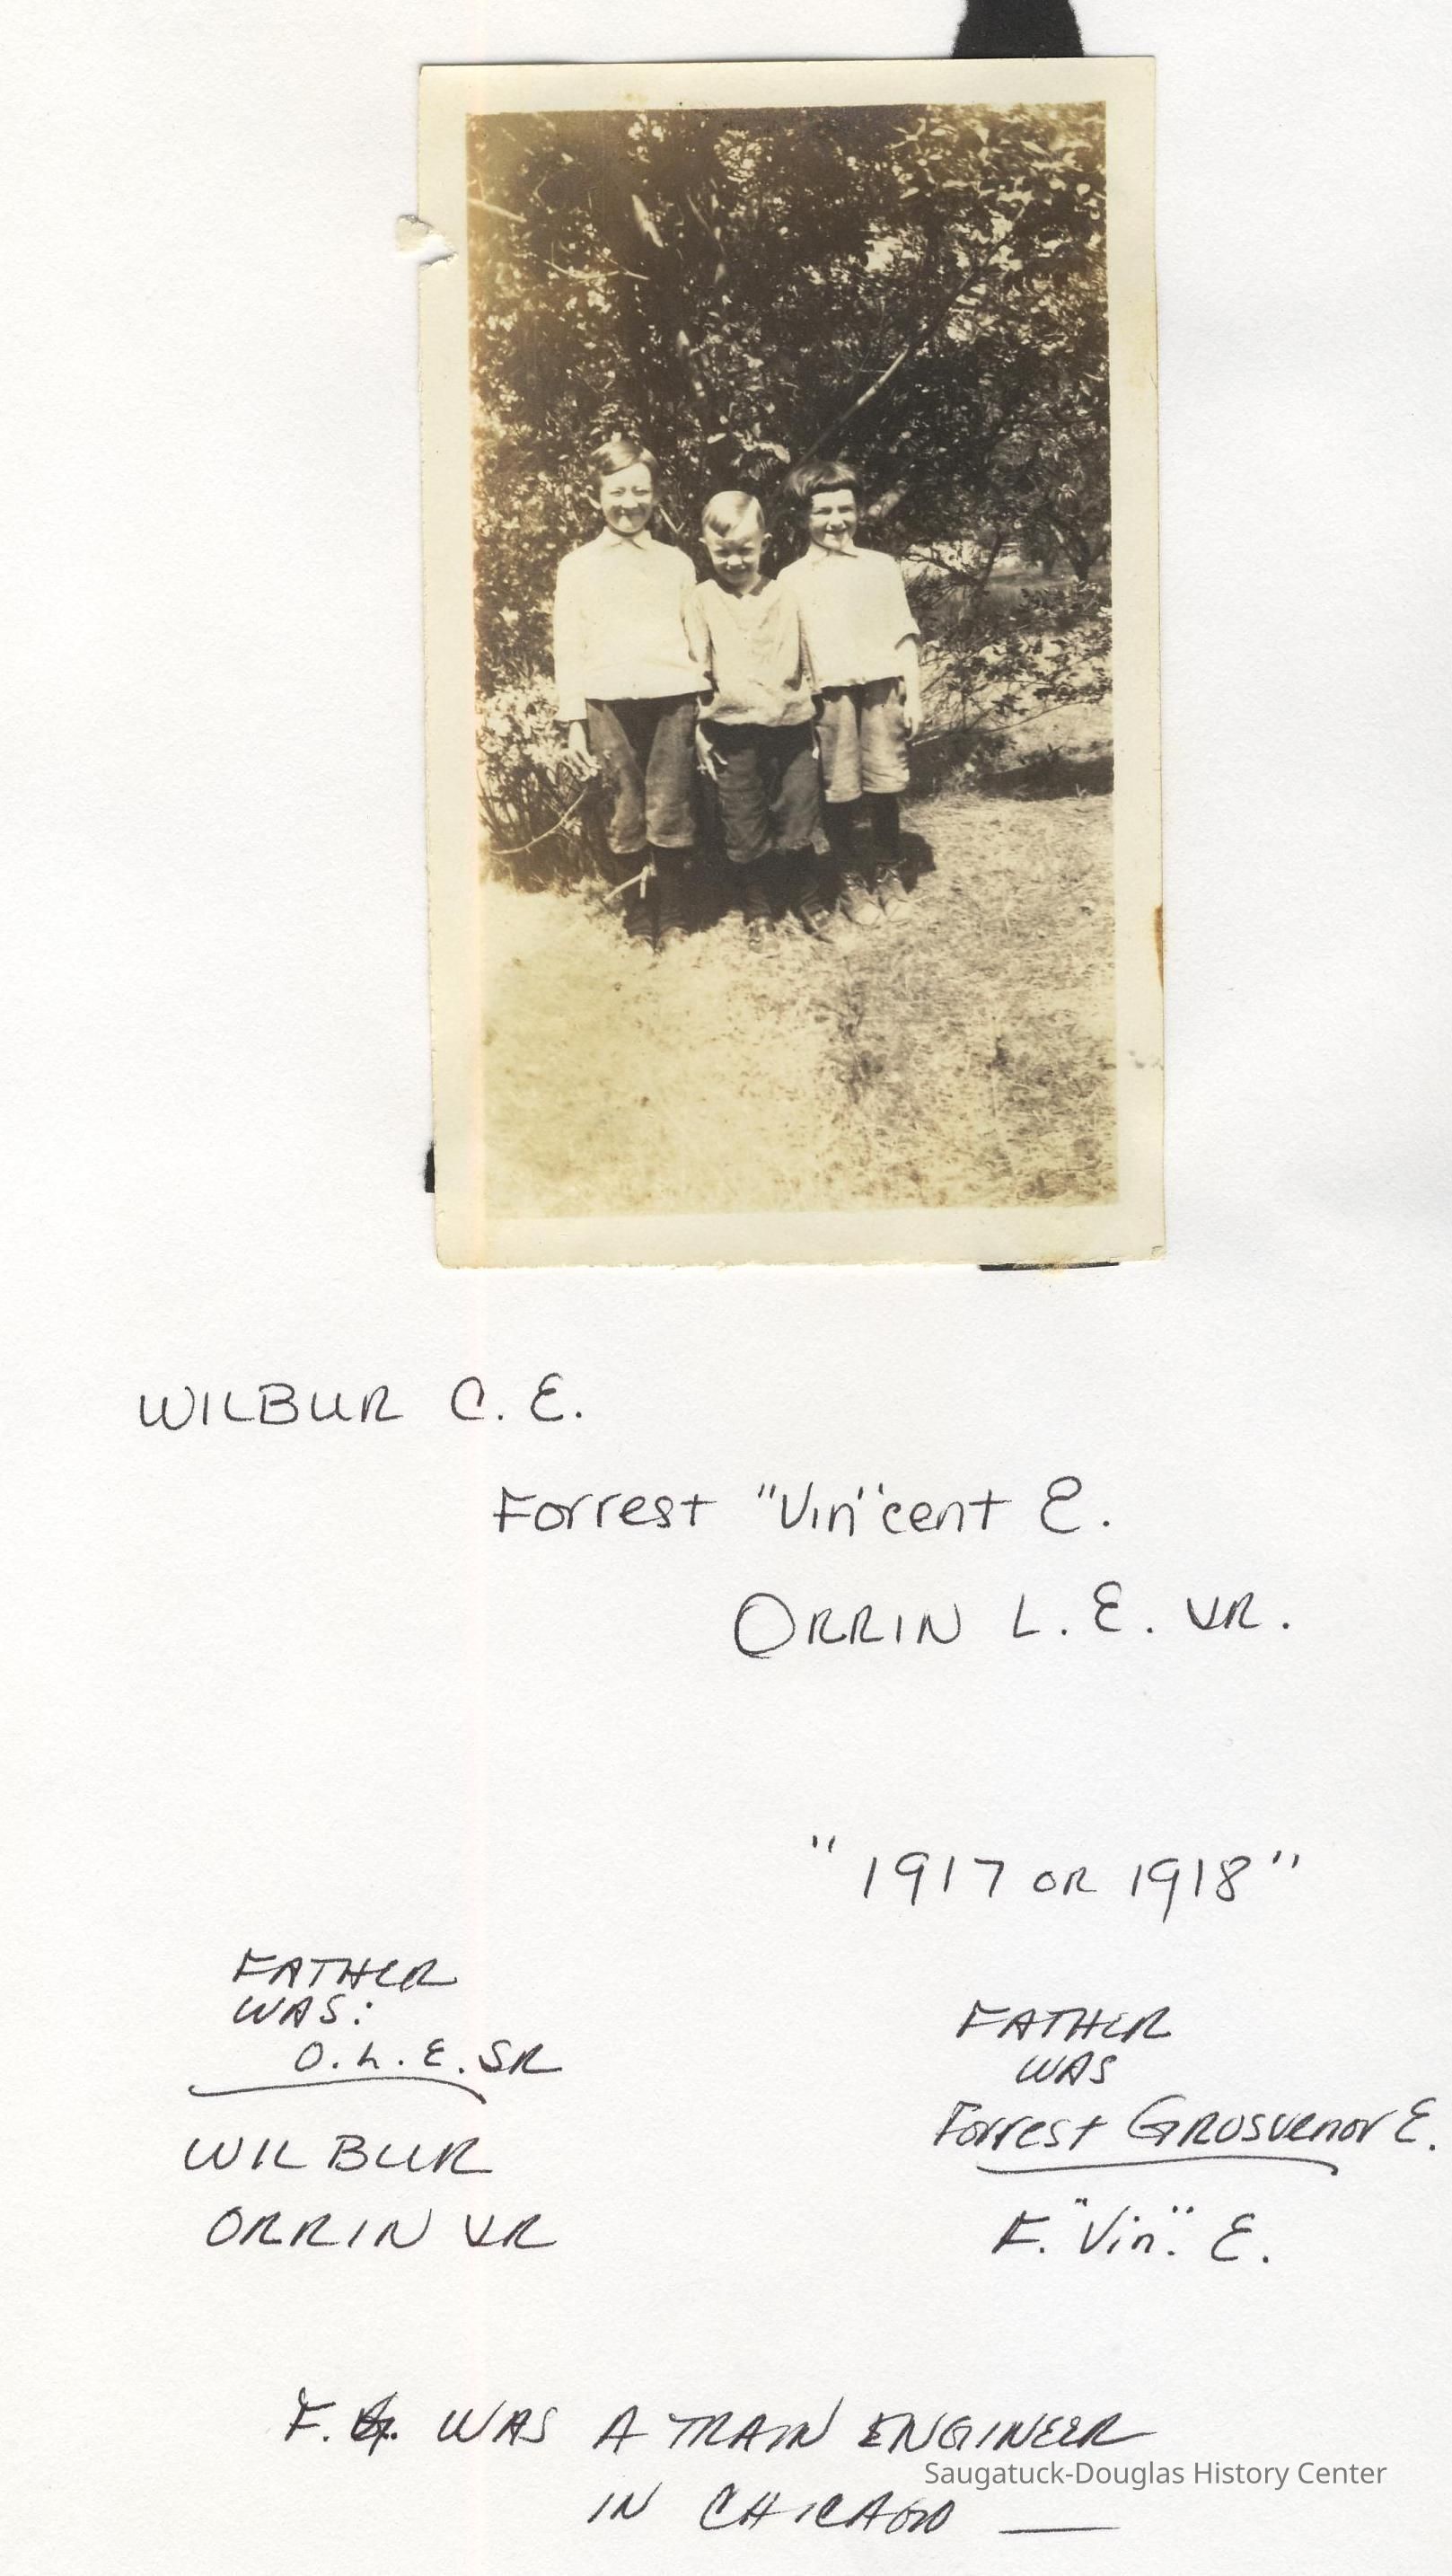 WILBUR C. E.
Forrest "Vin"cent E.
ORRIN L. E. JR.
"1917 OR 1918"
FATHER
WAS:
O. L. E. SR
WILBUR
ORRIN JR
FATHER
WAS
Forrest GROSVENOR E.
F. "Vin." E.
F. G. WAS A TRAIN ENGINEER
IN CHICAGO —
Saugatuck-Douglas History Center